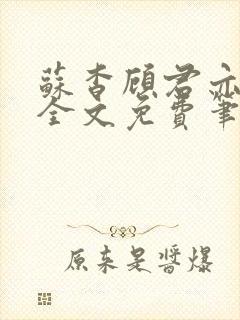 蘇杳顧君亦
全文免費筆
原来是醬爆